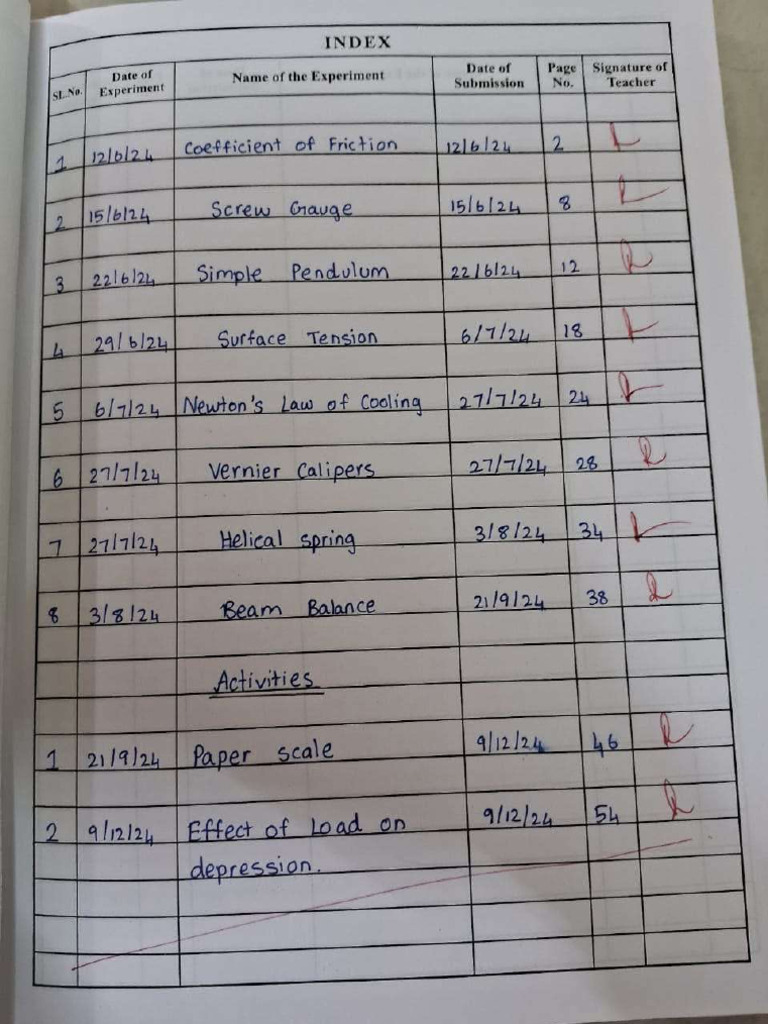 INDEX
SL.No. Date of Experiment Name of the Experiment Date of Submission Page No. Signature of Teacher
1 12/6/24 Coefficient of Friction 12/6/24 2
2 15/6/24 Screw Gauge 15/6/24 8
3 22/6/24 Simple Pendulum 22/6/24 12
4 29/6/24 Surface Tension 6/7/24 18
5 6/7/24 Newton's Law of Cooling 27/7/24 24
6 27/7/24 Vernier Calipers 27/7/24 28
7 27/7/24 Helical spring 3/8/24 34
8 3/8/24 Beam Balance 21/9/24 38
Activities
1 21/9/24 Paper scale 9/12/24 46
2 9/12/24 Effect of Load on 9/12/24 54
depression.